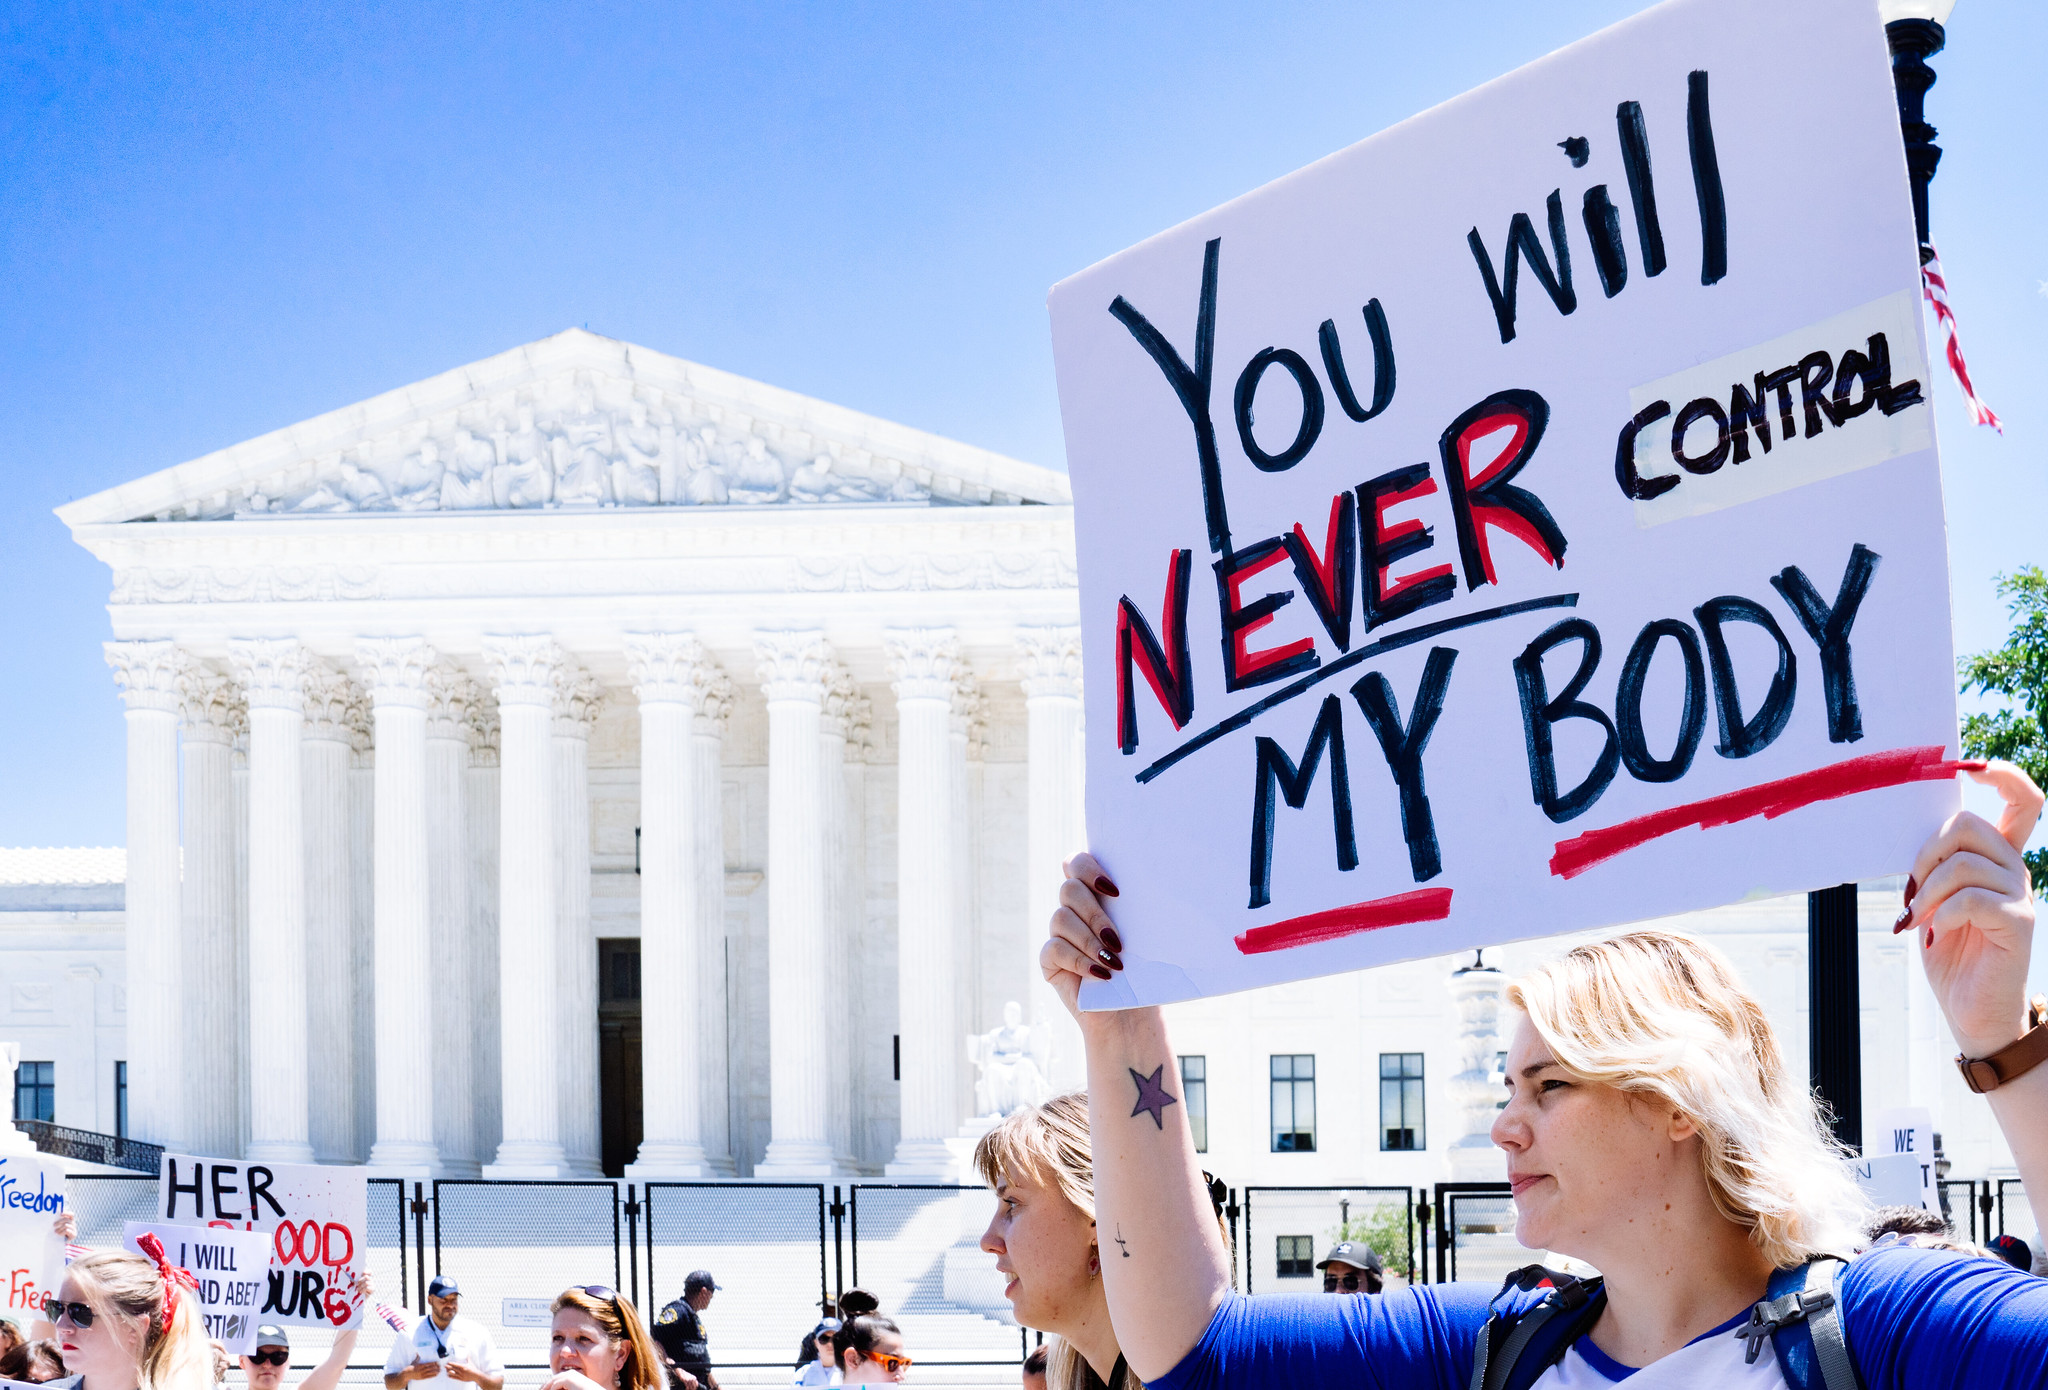 You will
NEVER CONTROL
MY BODY
Freedom
Free
HER
BLOOD
OUR
I WILL
ND ABET
RTION
AREA CLOSED
WE